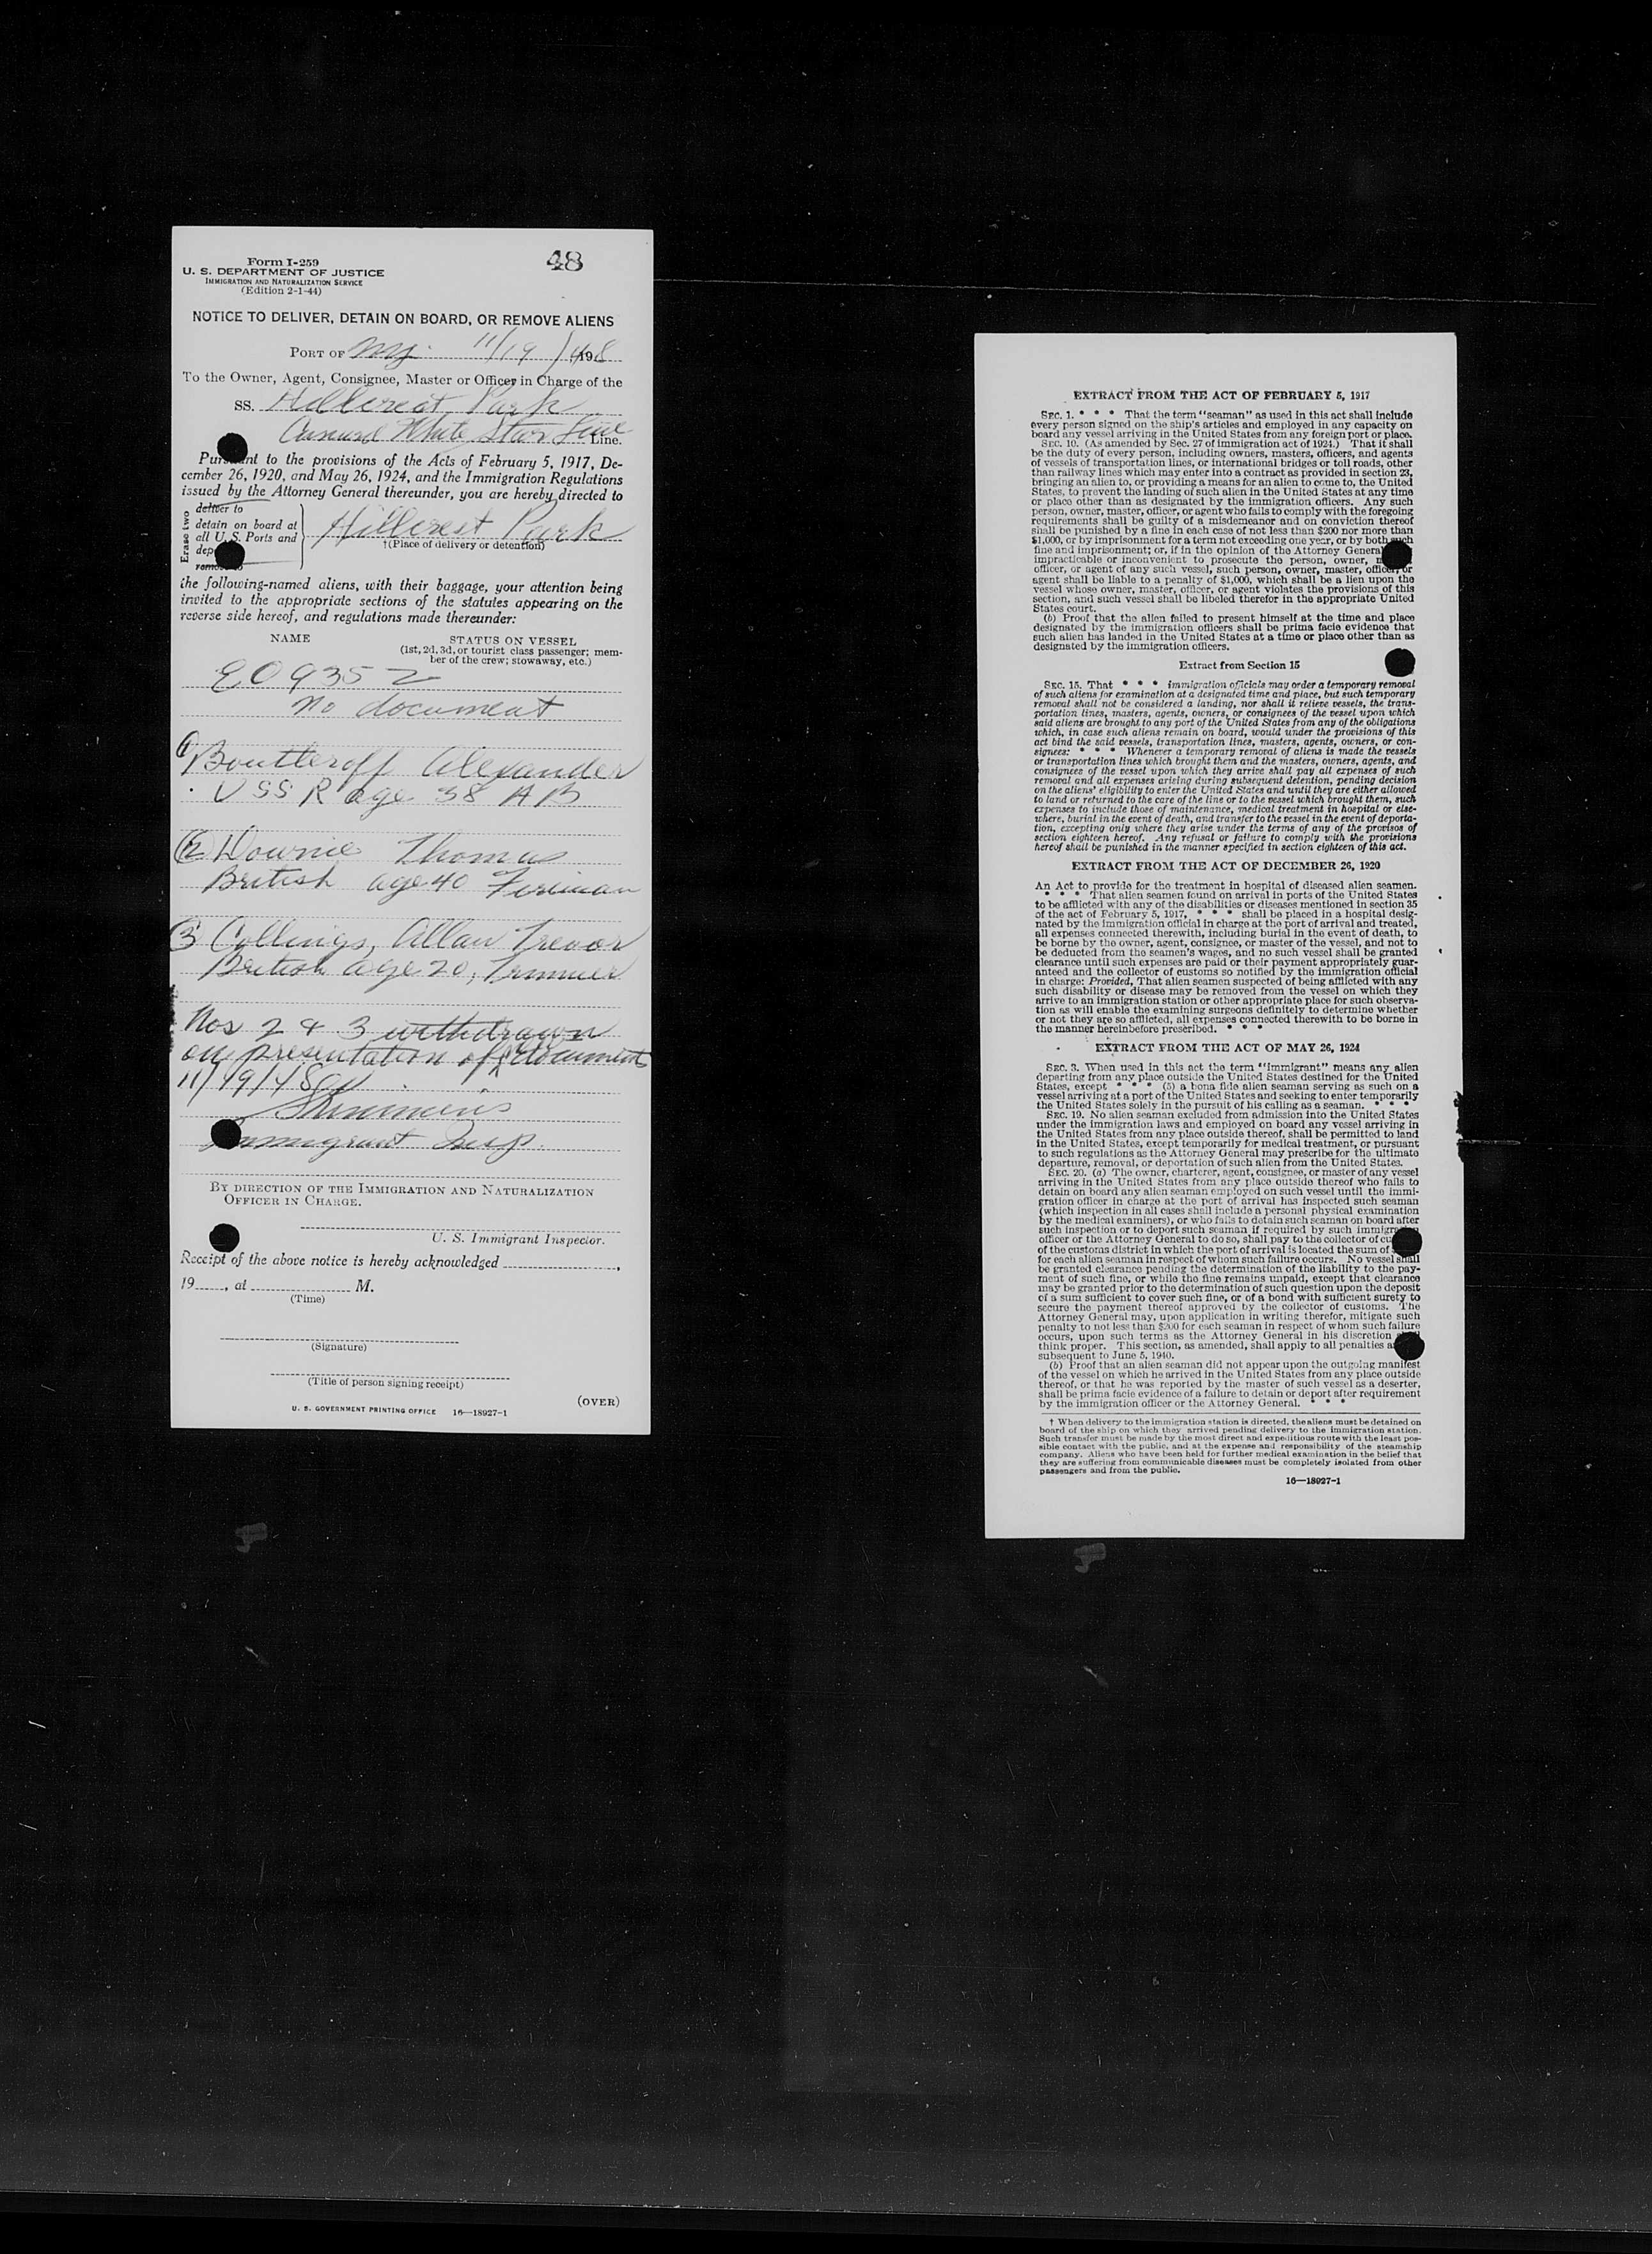 Form I-259
U. S. DEPARTMENT OF JUSTICE
IMMIGRATION AND NATURALIZATION SERVICE
(Edition 2-1-44)
48
NOTICE TO DELIVER, DETAIN ON BOARD, OR REMOVE ALIENS
PORT OF NY. 11/19/48, 19
To the Owner, Agent, Consignee, Master or Officer in Charge of the
SS. Hillcrest Park
Cunard White Star Line Line.
Pursuant to the provisions of the Acts of February 5, 1917, De-
cember 26, 1920, and May 26, 1924, and the Immigration Regulations
issued by the Attorney General thereunder, you are hereby directed to
Erase two
deliver to
detain on board at
all U. S. Ports and
dep
remove to
Hillcrest Park
†(Place of delivery or detention)
the following-named aliens, with their baggage, your attention being
invited to the appropriate sections of the statutes appearing on the
reverse side hereof, and regulations made thereunder:
NAME
STATUS ON VESSEL
(1st, 2d, 3d, or tourist class passenger; mem-
ber of the crew; stowaway, etc.)
EO 9352
No document
1 Boutleroff Alexander
USSR age 38 AB
2 Downie Thomas
British age 40 Fireman
3 Collings, Allan Trevor
British age 20, Trimmer
Nos 2 & 3 withdrawn
on presentation of document
11/19/48
Immigrant Insp.
BY DIRECTION OF THE IMMIGRATION AND NATURALIZATION
OFFICER IN CHARGE.
U. S. Immigrant Inspector.
Receipt of the above notice is hereby acknowledged ,
19 , at M.
(Time)
(Signature)
(Title of person signing receipt)
(OVER)
U. S. GOVERNMENT PRINTING OFFICE 16—18927-1
EXTRACT FROM THE ACT OF FEBRUARY 5, 1917
SEC. 1. * * * That the term "seaman" as used in this act shall include
every person signed on the ship's articles and employed in any capacity on
board any vessel arriving in the United States from any foreign port or place.
SEC. 10. (As amended by Sec. 27 of immigration act of 1924.) That it shall
be the duty of every person, including owners, masters, officers, and agents
of vessels of transportation lines, or international bridges or toll roads, other
than railway lines which may enter into a contract as provided in section 23,
bringing an alien to, or providing a means for an alien to come to, the United
States, to prevent the landing of such alien in the United States at any time
or place other than as designated by the immigration officers. Any such
person, owner, master, officer, or agent who fails to comply with the foregoing
requirements shall be guilty of a misdemeanor and on conviction thereof
shall be punished by a fine in each case of not less than $200 nor more than
$1,000, or by imprisonment for a term not exceeding one year, or by both such
fine and imprisonment; or, if in the opinion of the Attorney General
impracticable or inconvenient to prosecute the person, owner,
officer, or agent of any such vessel, such person, owner, master, officer, or
agent shall be liable to a penalty of $1,000, which shall be a lien upon the
vessel whose owner, master, officer, or agent violates the provisions of this
section, and such vessel shall be libeled therefor in the appropriate United
States court.
(b) Proof that the alien failed to present himself at the time and place
designated by the immigration officers shall be prima facie evidence that
such alien has landed in the United States at a time or place other than as
designated by the immigration officers.
Extract from Section 15
SEC. 15. That * * * immigration officials may order a temporary removal
of such aliens for examination at a designated time and place, but such temporary
removal shall not be considered a landing, nor shall it relieve vessels, the trans-
portation lines, masters, agents, owners, or consignees of the vessel upon which
said aliens are brought to any port of the United States from any of the obligations
which, in case such aliens remain on board, would under the provisions of this
act bind the said vessels, transportation lines, masters, agents, owners, or con-
signees: * * * Whenever a temporary removal of aliens is made the vessels
or transportation lines which brought them and the masters, owners, agents, and
consignees of the vessel upon which they arrive shall pay all expenses of such
removal and all expenses arising during subsequent detention, pending decision
on the aliens' eligibility to enter the United States and until they are either allowed
to land or returned to the care of the line or to the vessel which brought them, such
expenses to include those of maintenance, medical treatment in hospital or else-
where, burial in the event of death, and transfer to the vessel in the event of deporta-
tion, excepting only where they arise under the terms of any of the provisos of
section eighteen hereof. Any refusal or failure to comply with the provisions
hereof shall be punished in the manner specified in section eighteen of this act.
EXTRACT FROM THE ACT OF DECEMBER 26, 1920
An Act to provide for the treatment in hospital of diseased alien seamen.
* * * That alien seamen found on arrival in ports of the United States
to be afflicted with any of the disabilities or diseases mentioned in section 35
of the act of February 5, 1917, * * * shall be placed in a hospital desig-
nated by the immigration official in charge at the port of arrival and treated,
all expenses connected therewith, including burial in the event of death, to
be borne by the owner, agent, consignee, or master of the vessel, and not to
be deducted from the seamen's wages, and no such vessel shall be granted
clearance until such expenses are paid or their payment appropriately guar-
anteed and the collector of customs so notified by the immigration official
in charge: Provided, That alien seamen suspected of being afflicted with any
such disability or disease may be removed from the vessel on which they
arrive to an immigration station or other appropriate place for such observa-
tion as will enable the examining surgeons definitely to determine whether
or not they are so afflicted, all expenses connected therewith to be borne in
the manner hereinbefore prescribed. * * *
EXTRACT FROM THE ACT OF MAY 26, 1924
SEC. 3. When used in this act the term "immigrant" means any alien
departing from any place outside the United States destined for the United
States, except * * * (5) a bona fide alien seaman serving as such on a
vessel arriving at a port of the United States and seeking to enter temporarily
the United States solely in the pursuit of his calling as a seaman. * * *
SEC. 19. No alien seaman excluded from admission into the United States
under the immigration laws and employed on board any vessel arriving in
the United States from any place outside thereof, shall be permitted to land
in the United States, except temporarily for medical treatment, or pursuant
to such regulations as the Attorney General may prescribe for the ultimate
departure, removal, or deportation of such alien from the United States.
SEC. 20. (a) The owner, charterer, agent, consignee, or master of any vessel
arriving in the United States from any place outside thereof who fails to
detain on board any alien seaman employed on such vessel until the immi-
gration officer in charge at the port of arrival has inspected such seaman
(which inspection in all cases shall include a personal physical examination
by the medical examiners), or who fails to detain such seaman on board after
such inspection or to deport such seaman if required by such immigration
officer or the Attorney General to do so, shall pay to the collector of cu
of the customs district in which the port of arrival is located the sum of
for each alien seaman in respect of whom such failure occurs. No vessel shall
be granted clearance pending the determination of the liability to the pay-
ment of such fine, or while the fine remains unpaid, except that clearance
may be granted prior to the determination of such question upon the deposit
of a sum sufficient to cover such fine, or of a bond with sufficient surety to
secure the payment thereof approved by the collector of customs. The
Attorney General may, upon application in writing therefor, mitigate such
penalty to not less than $200 for each seaman in respect of whom such failure
occurs, upon such terms as the Attorney General in his discretion shall
think proper. This section, as amended, shall apply to all penalties a
subsequent to June 5, 1940.
(b) Proof that an alien seaman did not appear upon the outgoing manifest
of the vessel on which he arrived in the United States from any place outside
thereof, or that he was reported by the master of such vessel as a deserter,
shall be prima facie evidence of a failure to detain or deport after requirement
by the immigration officer or the Attorney General. * * *
† When delivery to the immigration station is directed, the aliens must be detained on
board of the ship on which they arrived pending delivery to the immigration station.
Such transfer must be made by the most direct and expeditious route with the least pos-
sible contact with the public, and at the expense and responsibility of the steamship
company. Aliens who have been held for further medical examination in the belief that
they are suffering from communicable diseases must be completely isolated from other
passengers and from the public.
16—18927-1